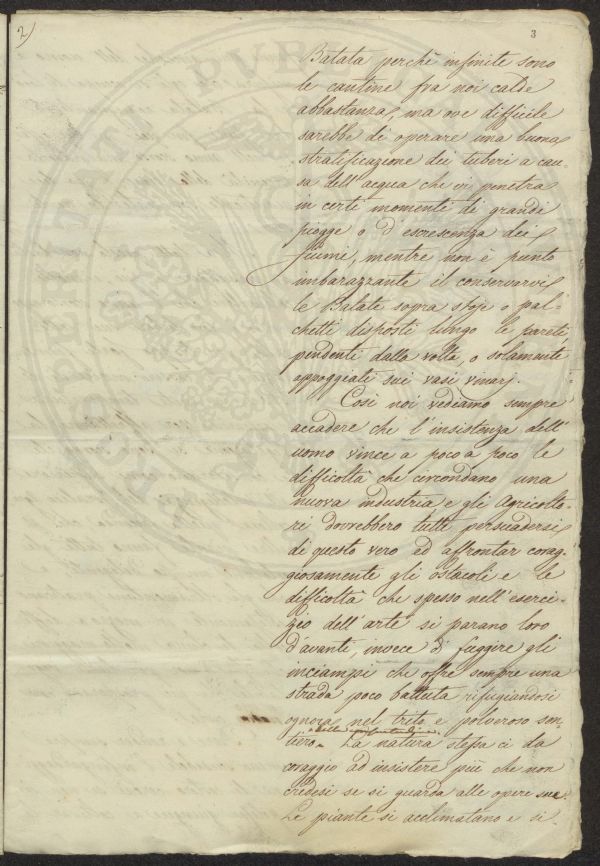 2)
3
Batata perchè infinite sono
le cantine fra noi calde
abbastanza, ma ove difficile
sarebbe di operare una buona
stratificazione dei tuberi a cau-
sa dell'acqua che vi penetra
in certi momenti di grandi
piogge o d'escrescenza dei
fiumi, mentre non è punto
imbarazzante il conservarvi
le Batate sopra stoje o pal-
chetti disposti lungo le pareti,
pendenti dalla volta, o solamente
appoggiati sui vasi vinarj.
Così noi vediamo sempre
accadere che l'insistenza dell'
uomo vince a poco a poco le
difficoltà che circondano una
nuova industria e gli Agricolto-
ri dovrebbero tutti persuadersi
di questo vero ed affrontar corag-
giosamente gli ostacoli e le
difficoltà che spesso nell'eserci-
zio dell'arte si parano loro
d'avanti, invece di fuggire gli
inciampi che offre sempre una
strada poco battuta rifugiandosi
ognora nel trito e polveroso sen-
tiero. La natura stessa ci da
coraggio ad insistere più che non
credesi se si guarda alle opere sue.
Le piante si acclimatano e si